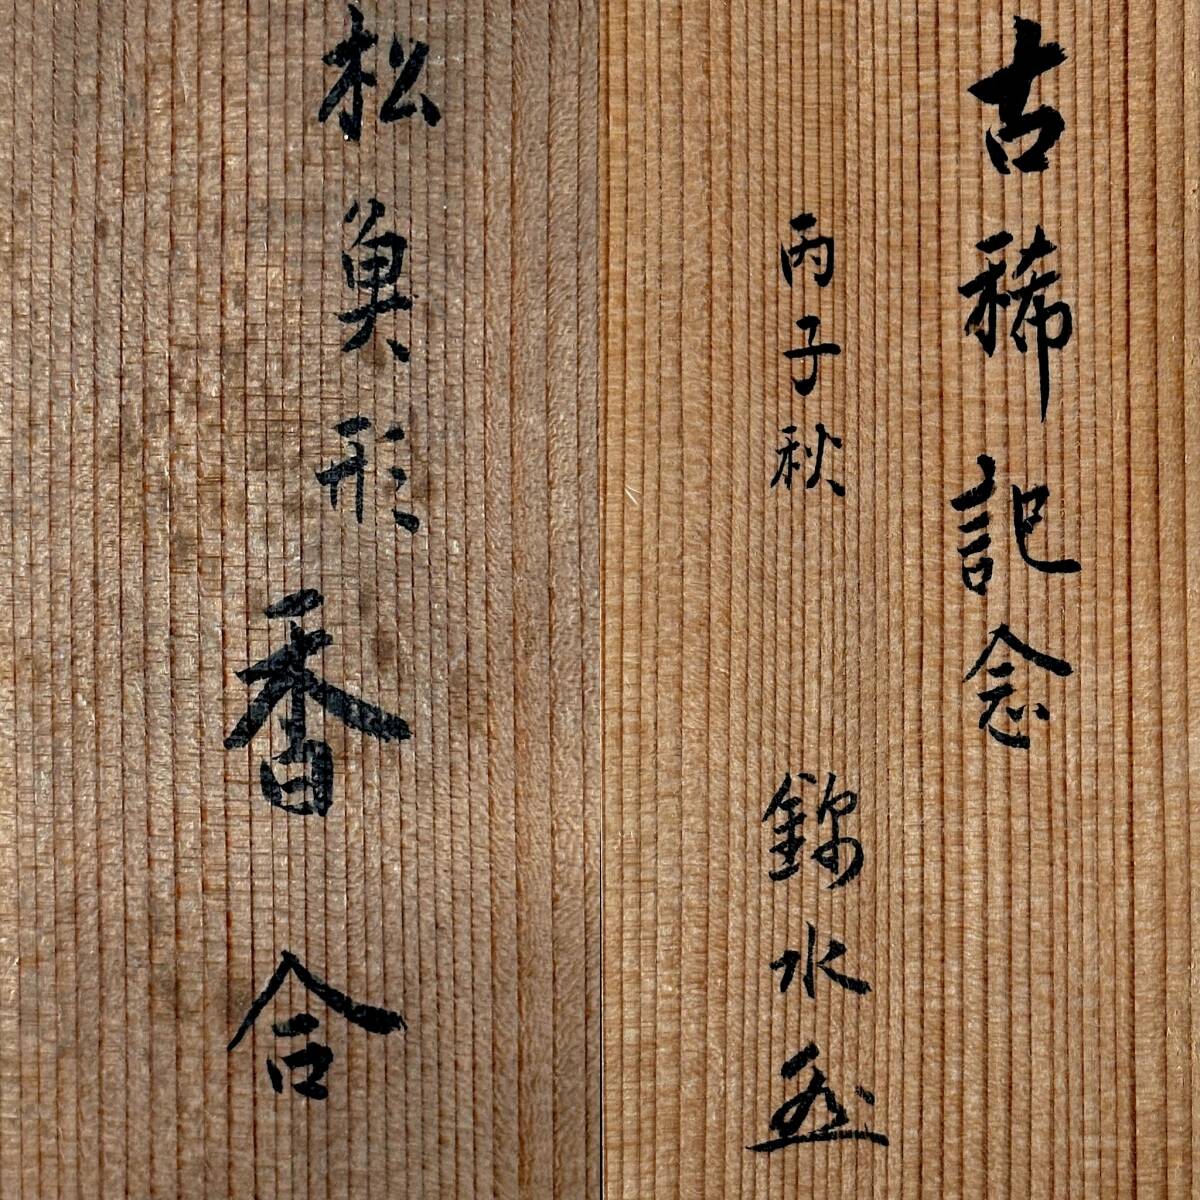 松魚形
香合
古稀記念
丙子秋 錦水